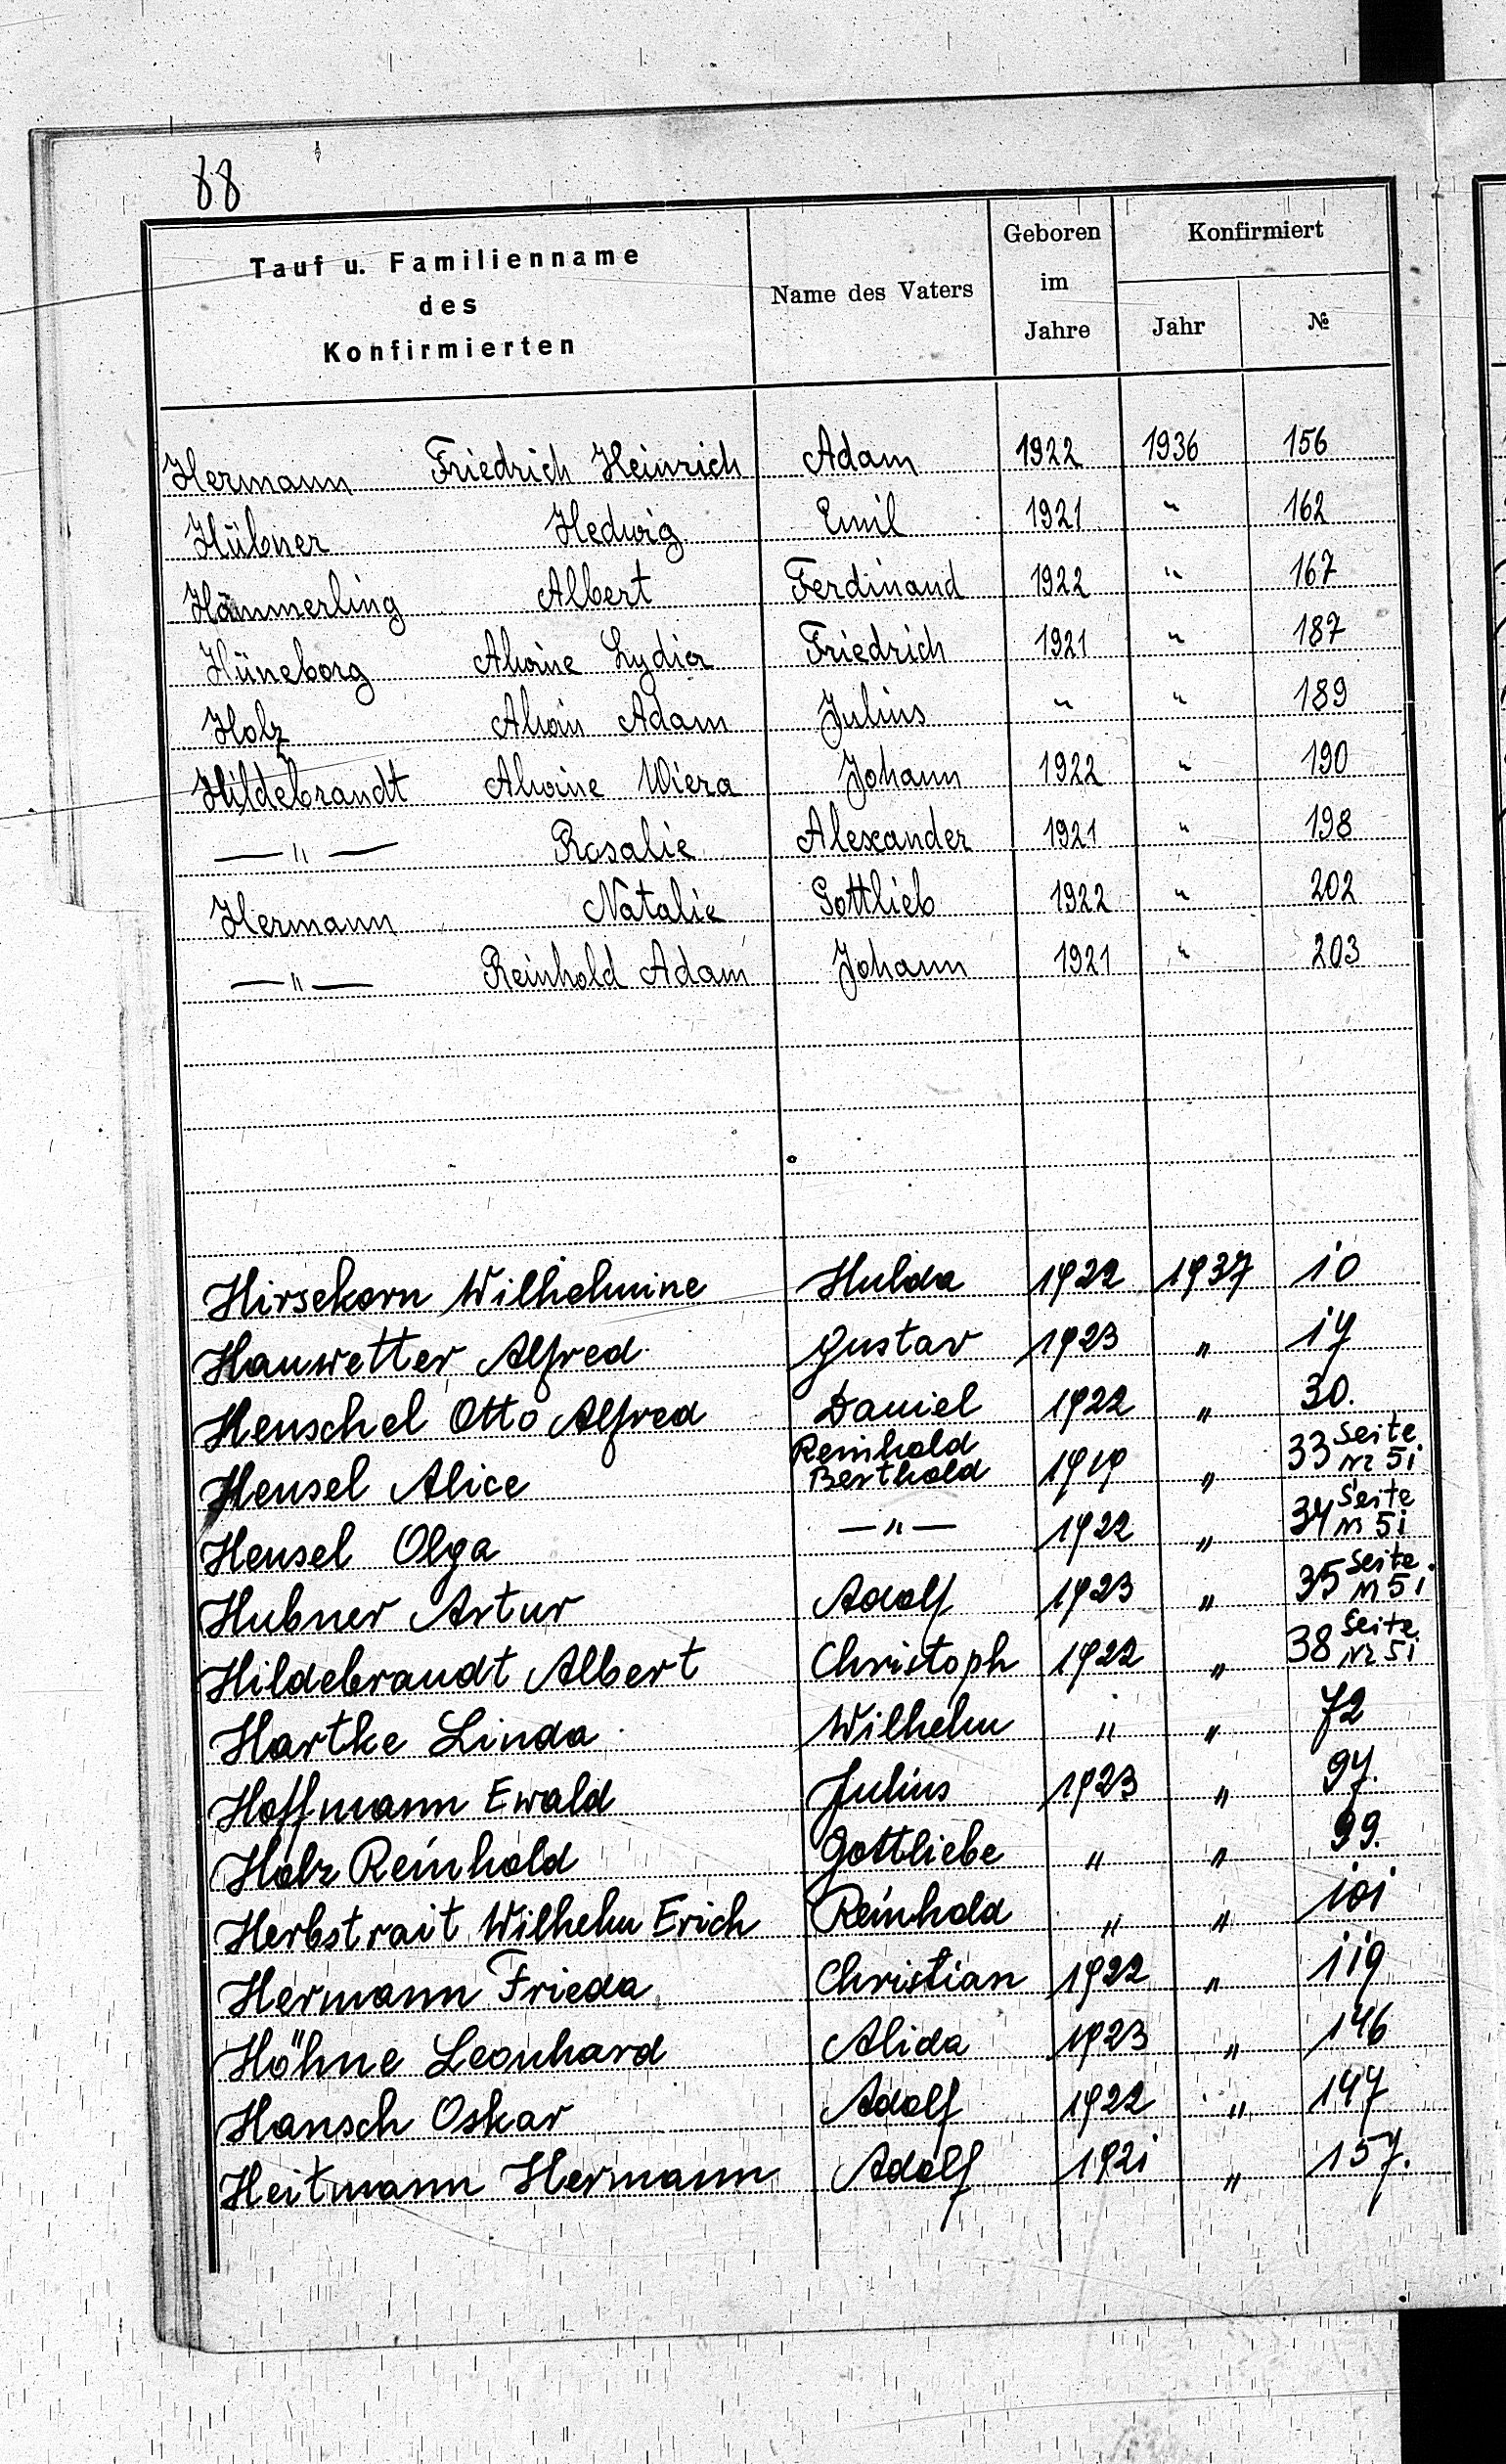 88
Tauf u. Familienname des Konfirmierten | Name des Vaters | Geboren im Jahre | Konfirmiert Jahr | №
Hermann Friedrich Heinrich Adam 1922 1936 156
Hübner Hedwig Emil 1921 " 162
Hämmerling Albert Ferdinand 1922 " 167
Hüneborg Alwine Lydia Friedrich 1921 " 187
Holz Alwin Adam Julius " " 189
Hildebrandt Alwine Wiera Johann 1922 " 190
—"— Rosalie Alexander 1921 " 198
Hermann Natalie Gottlieb 1922 " 202
—"— Reinhold Adam Johann 1921 " 203
Hirsekorn Wilhelmine Hulda 1922 1937 10
Hauwetter Alfred Gustav 1923 " 17
Henschel Otto Alfred Daniel 1922 " 30.
Hensel Alice Reinhold Berthold 1919 " 33 Seite Nr 51
Hensel Olga —"— 1922 " 34 Seite N 51
Hubner Artur Adolf 1923 " 35 Seite N 51.
Hildebrandt Albert Christoph 1922 " 38 Seite Nr 51
Hartke Linda Wilhelm " " 72
Hoffmann Ewald Julius 1923 " 97.
Holz Reinhold Gottliebe " " 99.
Herbstrait Wilhelm Erich Reinhold " " 101
Hermann Frieda Christian 1922 " 119
Höhne Leonhard Alida 1923 " 146
Hansch Oskar Adolf 1922 " 147
Heitmann Hermann Adolf 1921 " 157.